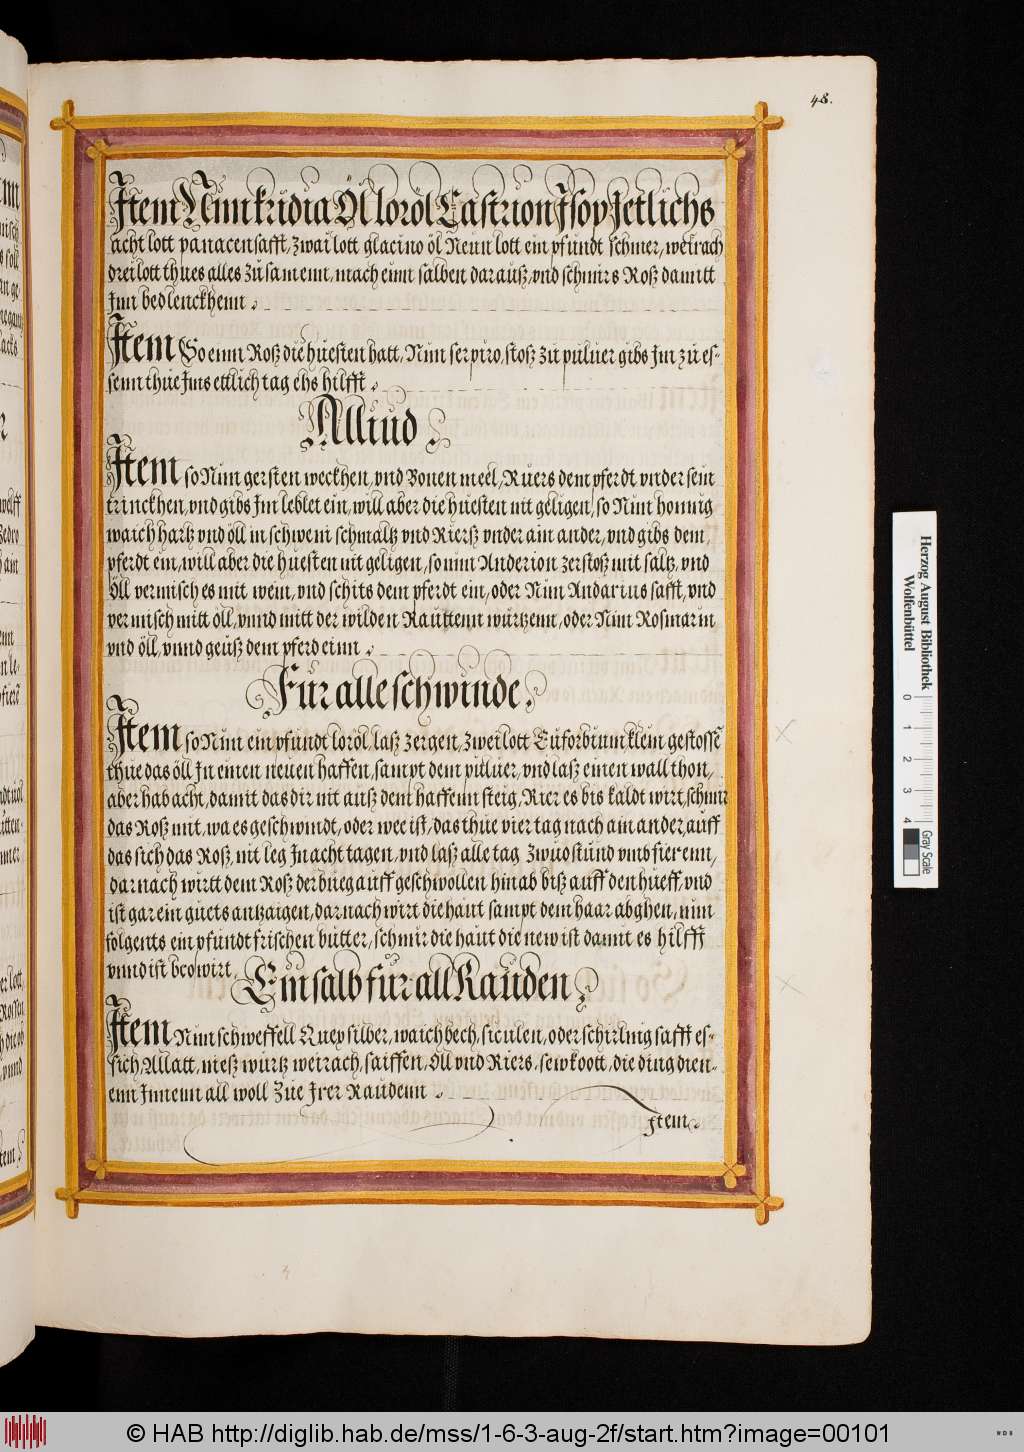 48.
Item Nim kridia Öl loröl Castrion Isop Jetlichs
acht lott panacen safft, zwai lott glacino öl Neun lott ein pfundt schmer, weirach
drei lott thues alles zusamenn, mach einn salben darauß, vnd schmirs Roß damitt
Inn bedlenckhenn.
Item So einn Roß die huesten hatt, Nim serpiro, stoß zu puluer gibs Im zu es-
senn thue Ims ettlich tag ehs hilfft.
Alliud
Item so Nim gersten weckhen, vnd Bonen meel, Ruers dem pferdt vnder sein
trinckhen, vnd gibs Im leblet ein, will aber die huesten nit geligen, so Nim honnig
waich hartz vnd öll in schweni schmaltz vnd Riersz vnder ain ander, vnd gibs dem,
pferdt ein, will aber die huesten nit geligen, so nim Anderion zerstoß mit saltz, vnd
Öll vermisch es mit wein, vnd schits dem pferdt ein, oder Nim Andarius safft, vnd
vermisch mitt öll, vnnd mitt der wilden Rauttenn wurtzenn, oder Nim Rosmarin
vnd öll, vnnd geuß dem pferd einn.
Für alle schwinde.
Item so Nim ein pfundt loröl, laß zergen, zwei lott Euforbium klein gestossē
thue das öll In einen neuen haffen, sampt dem puluer, vnd laß einen wall thon,
aber hab acht, damit das dir nit auß dem haffenn steig, Rier es bis kaldt wirt, schmir
das Roß mit, wa es geschwindt, oder wee ist, das thue vier tag nach ain ander, auff
das sich das Roß, nit leg In acht tagen, vnd laß alle tag zwuo stund vmbfierenn,
darnach wirtt dem Roß der bueg auff geschwollen hinab biß auff den hueff, vnd
ist gar ein guets antzaigen, darnach wirt die haut sampt dem haar abghen, nim
folgents ein pfundt frischen butter, schmir die haut die new ist damit es hilfft
vnnd ist bewirt.
Ein salb für all Rauden
Item Nim schweffell Queysilber, waich bech, siculen, oder schirlnig safft es-
sich, Allatt, nieß wurtz weirach, saiffen, Öll vnd Riers, sewkoott, die ding dien-
enn Innenn all woll zue Irer Raudenn.
Item.
Herzog August Bibliothek
Wolfenbüttel
0 1 2 3 4
Gray Scale
© HAB http://diglib.hab.de/mss/1-6-3-aug-2f/start.htm?image=00101